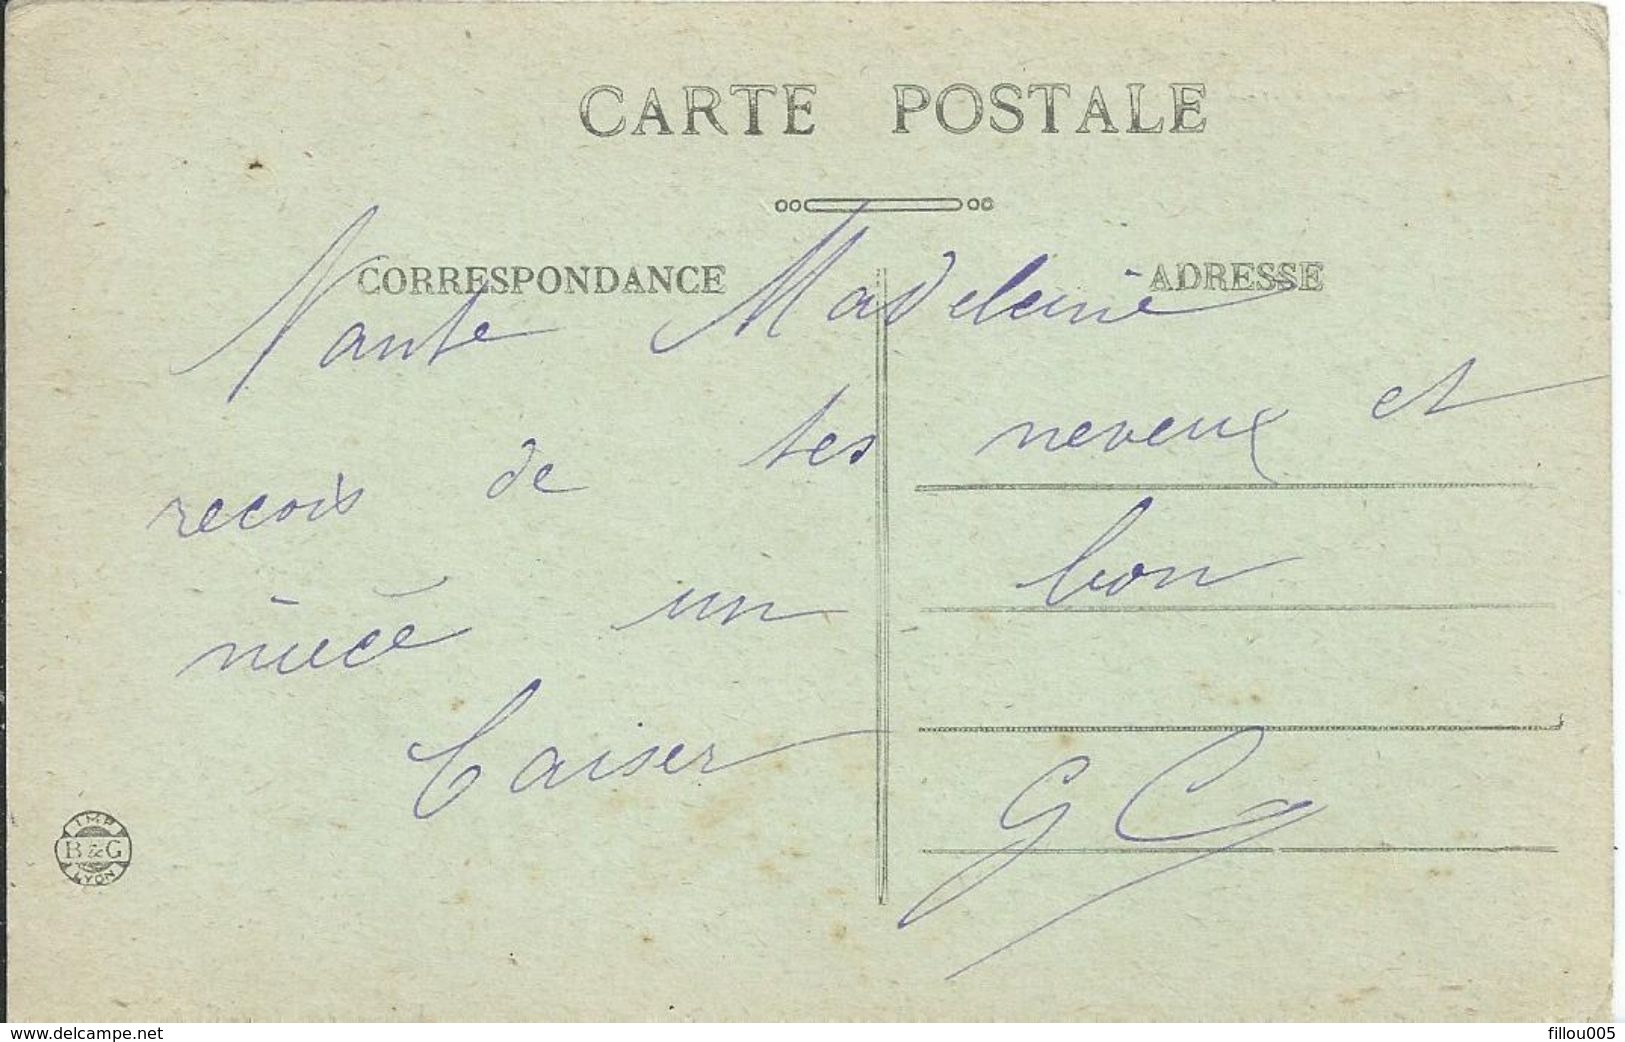 CARTE POSTALE
CORRESPONDANCE ADRESSE
Nante Madeleine
recois de tes neveux et
nièce un bon
baiser
G C
IMP
B & G
LYON
www.delcampe.net
fillou005